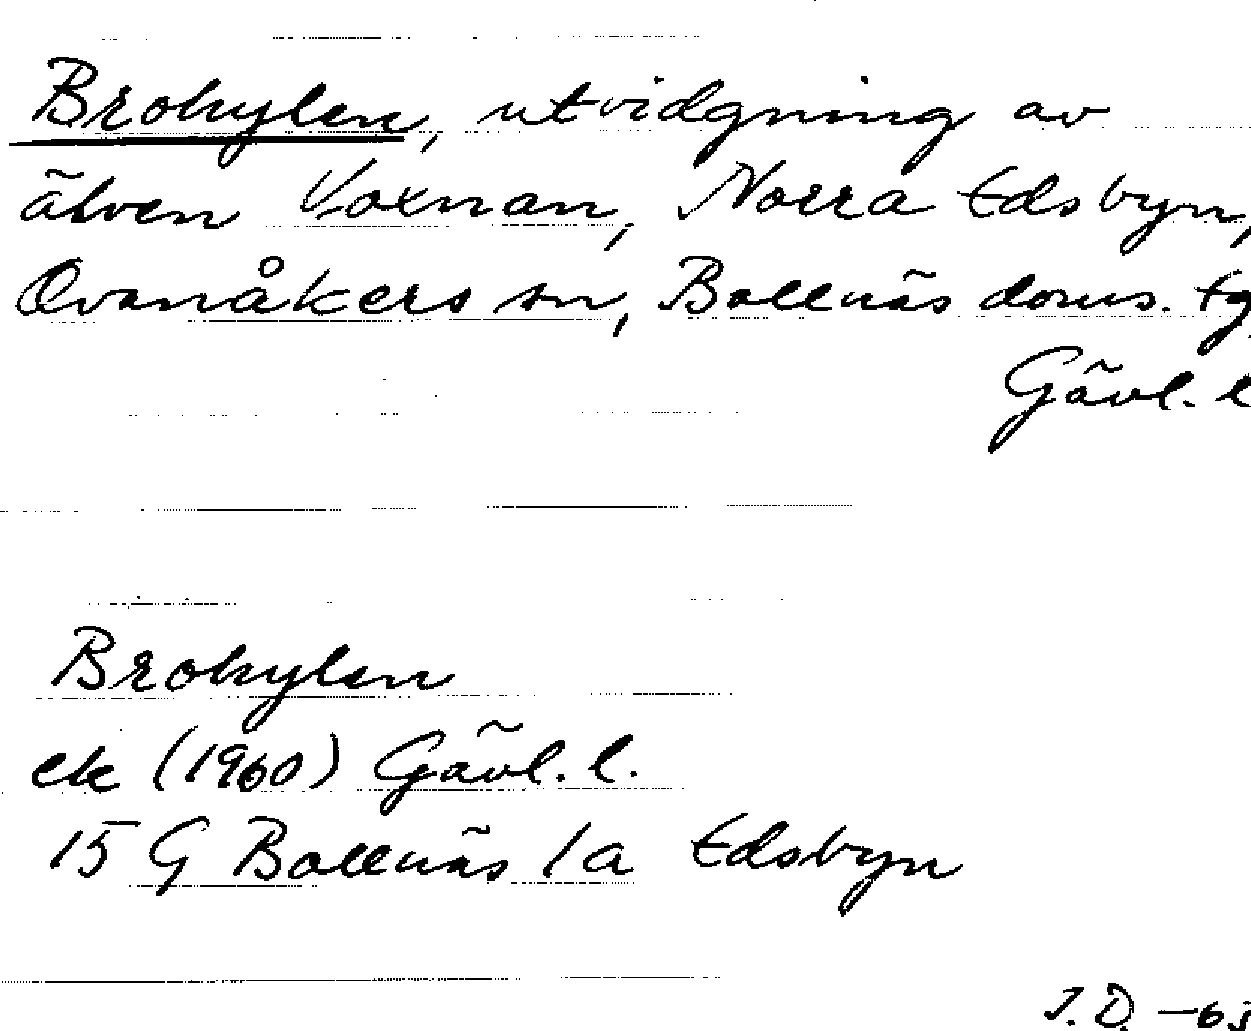 Brohylen, utvidgning av
älven Voxnan, Norra Edsbyn,
Ovanåkers sn, Bollnäs doms. tg
Gävl. l
Brohylen
ek (1960) Gävl. l.
15 G Bollnäs 1a Edsbyn
I.D. -63